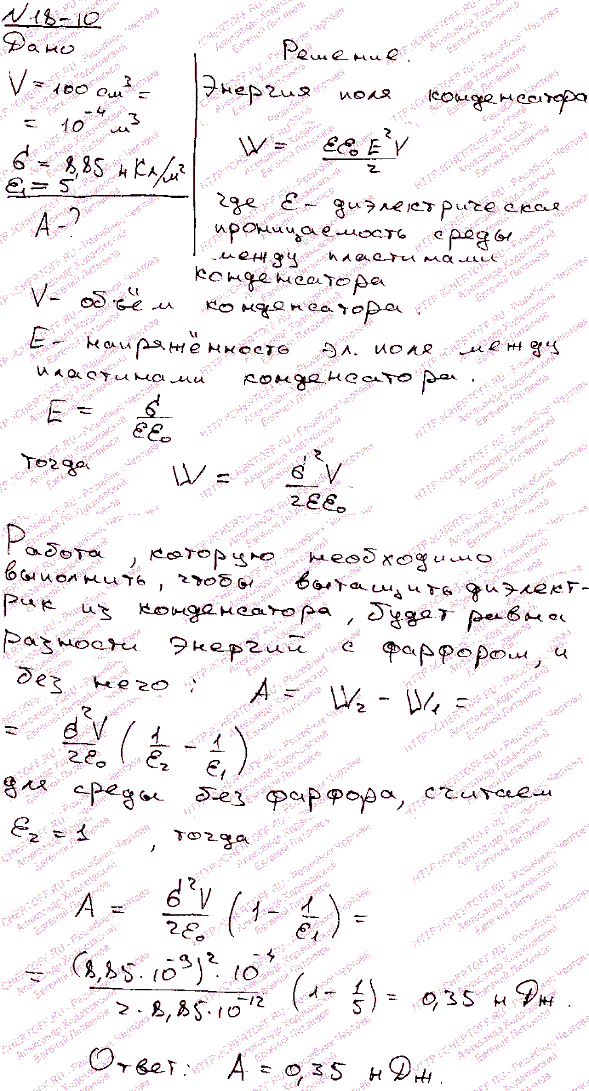 N 18-10
Дано
V = 100 см³ =
= 10⁻⁴ м³
σ = 8,85 нКл/м²
ε₁ = 5
A - ?
Решение.
Энергия поля конденсатора
W = εε₀E²V / 2
где ε - диэлектрическая
проницаемость среды
между пластинами
конденсатора
V - объём конденсатора.
E - напряжённость эл. поля между
пластинами конденсатора.
E = σ / εε₀
тогда W = σ²V / 2εε₀
Работа, которую необходимо
выполнить, чтобы вытащить диэлект-
рик из конденсатора, будет равна
разности энергий с фарфором, и
без него: A = W₂ - W₁ =
= σ²V / 2ε₀ (1/ε₂ - 1/ε₁)
для среды без фарфора, считаем
ε₂ = 1, тогда
A = σ²V / 2ε₀ (1 - 1/ε₁) =
= (8,85·10⁻⁹)²·10⁻⁴ / 2·8,85·10⁻¹² (1 - 1/5) = 0,35 нДж.
Ответ: A = 0,35 нДж.
HTTP://CHERTOFF.RU - Решебник Чертова